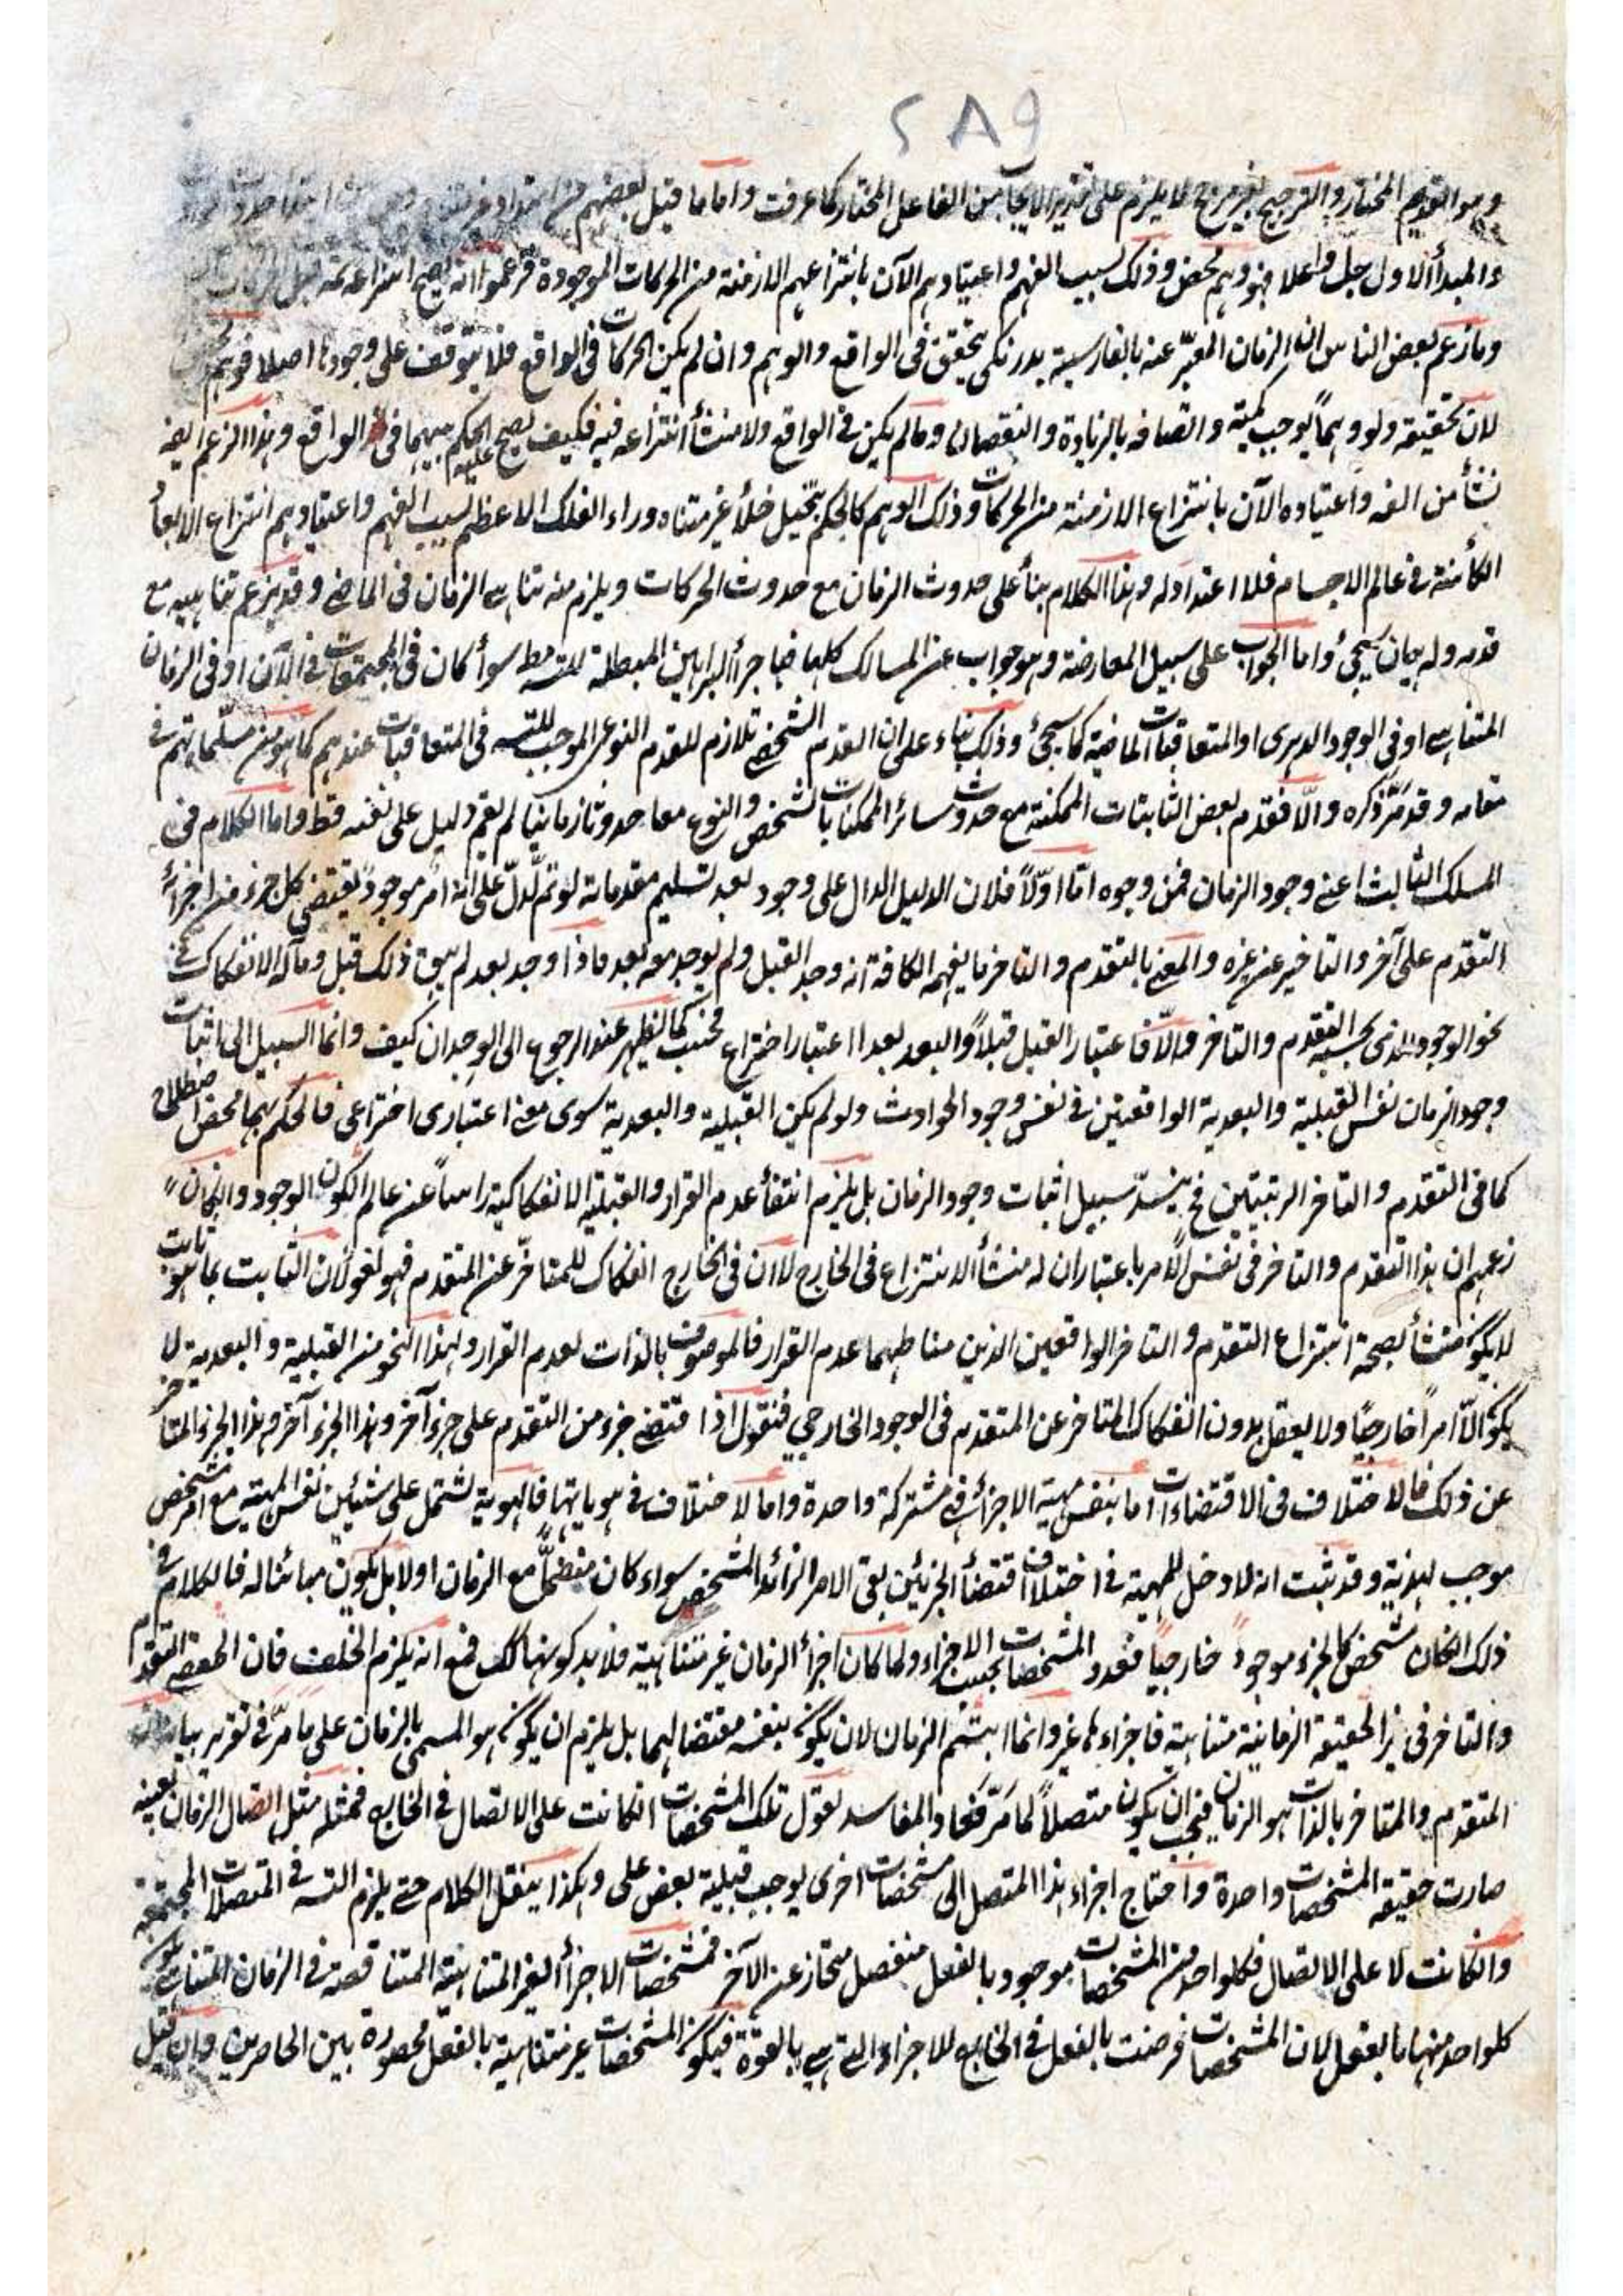 ٢٨٩
وهو القديم المختار والترجيح بغير مرجح لا يلزم على تقدير الايجاب من الفاعل المختار كما عرفت واما ما قيل لبعضهم من امتداد غير
والمبدأ الاول جل واعلا فهو وهم محض وذلك بسبب الفهم واعتيادهم الآن بانتزاعهم الازمنة من الحركات الموجودة فزعموا انه يصح انتزاعه ثمه قبل الحركات
وما زعم بعض الناس ان الزمان المعبّر عنه بالفارسية بدرنكى يتحقق فى الواقع والوهم وان لم يكن الحركات فى الواقع فلا يتوقف على وجودها اصلا فوهم
لان تحقيقه ولو وهماً يوجب كميته واتصافه بالزيادة والنقصان وما لم يكن فى الواقع ولا منشأ انتزاعه فيه فكيف يصح الحكم عليه بهما فى الواقع وهذا الزعم ايضه
نشأ من الفه واعتياده الآن بانتزاع الازمنة من الحركات وذلك الوهم كالحكم بتخيل خلأ غير متناه وراء الفلك الاعظم بسبب الفهم واعتيادهم انتزاع الابعأ
الكائنة فى عالم الاجسام فلا اعتداد له وهذا الكلام بنأ على حدوث الزمان مع حدوث الحركات ويلزم منه تناهى الزمان فى الماضى وقد يزعم تناهيه مع
قدمه وله بيان سيجئ واما الجواب على سبيل المعارضة وهو جواب عن المسالك كلها فباجرأ البراهين المبطلة للتسه مط سوأ كان فى المجتمعات فى الآن او فى الزمان
المتناهى او فى الوجود الدهرى او المتعاقبات الماضية كما سيجئ وذلك بناء على ان القدم الشخصى تلازم للقدم النوعى الموجب للتسه فى المتعاقبات عندهم كما هو من مسلّماتهم فى
مقامه وقد مرّ ذكره والّا فقدم بعض الثابتات الممكنة مع حدوث سائر الممكنات بالشخص والنوع معا حدوثا زمانيا لم يقم دليل على نفيه قط واما الكلام فى
المسلك الثالث اعنى وجود الزمان فمن وجوه امّا اوّلاً فلان الدليل الدال على وجود بعد تسليم مقدماته لو تم لدلّ على انه امر موجود يقتضى كل جزء من اجزائه
التقدم على آخر والتأخير عن غيره والمعنى بالتقدم والتأخر ما يفهمه الكافة انه وجد القبل ولم يوجد معه بعد فاذا وجد بعد لم يبق ذلك قبل ومآله الانفكاك فى
نحو الوجود الذى بحسبه التقدم والتأخر والّا فاعتبار القبل قبلاً والبعد بعدا اعتبار اختراع محنب كما يظهر عند الرجوع الى الوجدان كيف وانما السبيل الى اثبات
وجود الزمان نفس القبلية والبعدية الواقعيتين فى نفس وجود الحوادث ولو لم يكن القبلية والبعدية سوى معنى اعتبارى اختراعى فالحكم بهما محض اصطلاح
كما فى التقدم والتأخر الرتبيتين فح ينسدّ سبيل اثبات وجود الزمان بل يلزم انتفأ عدم القرار والقبلية الانفكاكية راساً عن عالم الكون الوجود وان كان
زعمهم ان هذا التقدم والتأخر فى نفس الامر باعتبار ان له منشأ الانتزاع فى الخارج لا ان فى الخارج انفكاك للمتأخرّ عن المتقدم فهو لغو لان الثابت بما هو ثابت
لا يكون منشأ لصحة انتزاع التقدم والتأخر الواقعين الذين مناطهما عدم القرار فالموصوف بالذات لعدم القرار ولهذا النحو من القبلية والبعدية لا
يكون الّا امراً خارجيّاً ولا يعقل بدون انفكاك المتأخر عن المتقدم فى الوجود الخارجي فنقول اذا اقتضى جزء من التقدم على جزء آخر وهذا الجزء آخر وهذا الجزء المتأخر
عن ذلك فالاختلاف فى الاقتضاءات اما بنفس مهية الاجزأ فهى مشتركة واحدة واما لاختلاف فى هوياتها فالهوية تشتمل على شيئين نفس المهية مع امر مشخص
موجب لهذية وقد ثبت انه لا دخل للمهية فى اختلاف اقتضأ الجزئين بقى الامر الزائد الشخصى سواء كان مضمحلّ مع الزمان او لا بل يكون مبائنا له فالكلام فى
ذلك ان كان شخص كل جزء موجود خارجيّاً فعدد المشخصات بحسب الاجزاء ولما كان اجزأ الزمان غير متناهية فلابد كونها كك فمع انه يلزم الخلف فان المقتضى التقدم
والتأخر فى هذا الحقيقة الزمانية متناهية فاجزاءها غير وانما ابتثم الزمان لان يكون بنفسه مقتضا لهما بل يلزم ان يكون هو المسمى بالزمان على ما مرّ فى تقرير بيان
المتقدم والمتأخر بالذات هو الزمان فيجب ان يكون متصلاً لما مرّ فيحاد المفاسد نقول تلك المشخصات ان كانت على الاتصال فى الخارج فمثله مثل اتصال الزمان بعينه
صارت حقيقة المشخصات واحدة واحتاج اجزاء هذا المتصل الى مشخصات اخرى يوجب قبيلة بعض على وهكذا ينقل الكلام حتى يلزم التسه فى المتصلات المجتمعة
وان كانت لا على الاتصال فكلواحد من المشخصات موجود بالفعل منفصل منحاز عن الآخر فمشخصات الاجزأ الغير المتناهية المتناقصة فى الزمان المتناهى
كلواحد منها بالفعل لان المشخصات فرضت بالفعل فى الخارج للاجزاء التى هى بالقوة فيكون المشخصات غير متناهية بالفعل محصورة بين الحاصرين وان قيل